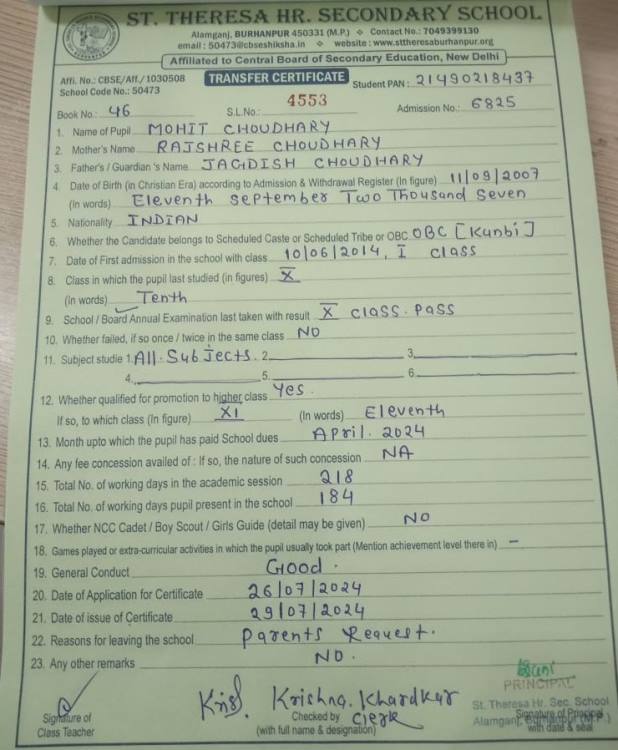 ST. THERESA HR. SECONDARY SCHOOL
Alamganj, BURHANPUR 450331 (M.P.) Contact No.: 7049399130
email : 50473@cbseshiksha.in website : www.sttheresaburhanpur.org
Affiliated to Central Board of Secondary Education, New Delhi
Affi. No.: CBSE/Aff./1030508 TRANSFER CERTIFICATE Student PAN : 21490218437
School Code No.: 50473
Book No.: 46 S.L.No.: 4553 Admission No.: 6825
1. Name of Pupil MOHIT CHOUDHARY
2. Mother's Name RAJSHREE CHOUDHARY
3. Father's / Guardian 's Name JAGDISH CHOUDHARY
4. Date of Birth (in Christian Era) according to Admission & Withdrawal Register (In figure) 11/09/2007
(In words) Eleventh September Two Thousand Seven
5. Nationality INDIAN
6. Whether the Candidate belongs to Scheduled Caste or Scheduled Tribe or OBC OBC [Kunbi]
7. Date of First admission in the school with class 10/06/2014, I class
8. Class in which the pupil last studied (in figures) X
(In words) Tenth
9. School / Board Annual Examination last taken with result X class. Pass
10. Whether failed, if so once / twice in the same class NO
11. Subject studie 1. All. Subjects. 2. 3.
4. 5. 6.
12. Whether qualified for promotion to higher class Yes.
If so, to which class (In figure) XI (In words) Eleventh
13. Month upto which the pupil has paid School dues April. 2024
14. Any fee concession availed of : If so, the nature of such concession NA
15. Total No. of working days in the academic session 218
16. Total No. of working days pupil present in the school 184
17. Whether NCC Cadet / Boy Scout / Girls Guide (detail may be given) NO
18. Games played or extra-curricular activities in which the pupil usually took part (Mention achievement level there in) –
19. General Conduct Good.
20. Date of Application for Certificate 26/07/2024
21. Date of issue of Certificate 29/07/2024
22. Reasons for leaving the school Parents Request.
23. Any other remarks NO.
PRINCIPAL
Krishna. Khardkar
St. Theresa Hr. Sec. School
Signature of Checked by Clerk Alamganj, Burhanpur (M.P.)
Signature of Principal
Class Teacher (with full name & designation) with date & seal